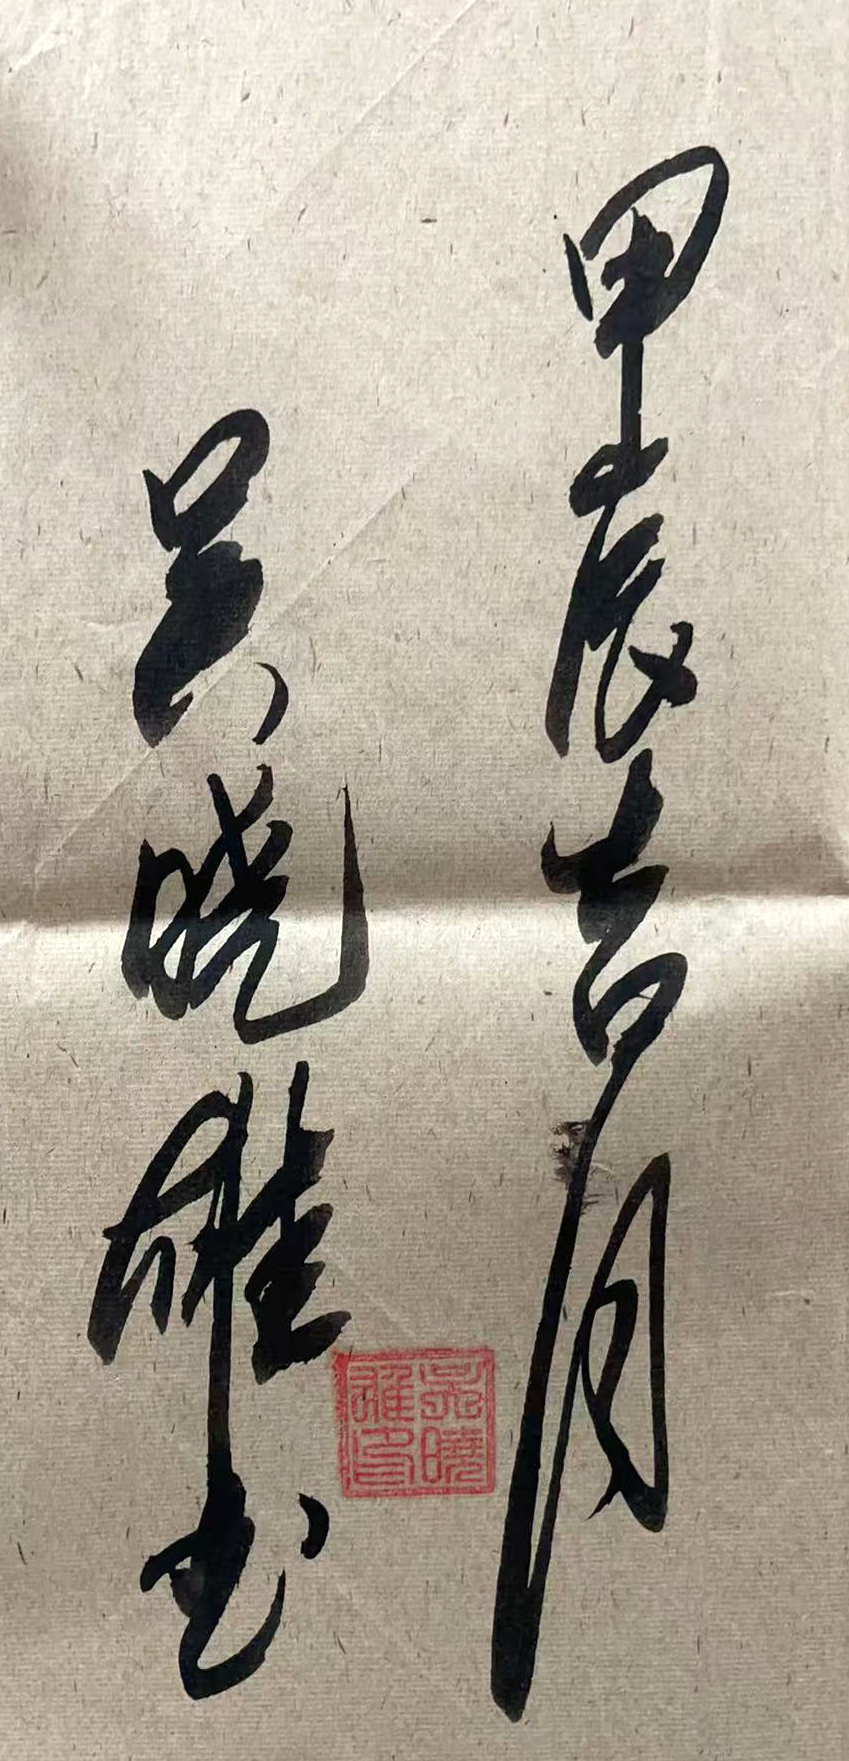 甲辰吉月
吴晓雄书
吴曉雄印